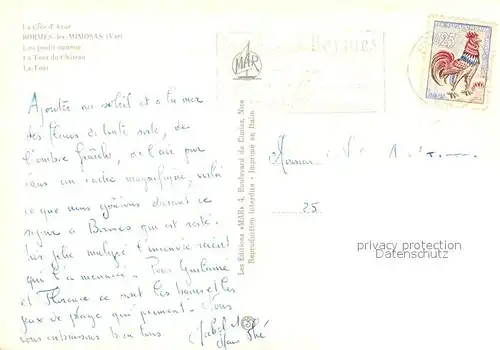 La Côte d'Azur
BORMES-les-MIMOSAS (Var)
La Tour du Château
Bormes
MAR
25
Ajoutez au soleil et à la mer
des fleurs de toute sorte, de
l'ombre fraîche, de l'air pur
dans un cadre magnifique, voilà
ce que nous goûtons durant ce
séjour à Bormes qui est resté
très jolie malgré l'incendie récent
qui l'a menacée. Pour Guylaine
et Florence ce sont les bains et les
jeux de plage qui priment. Nous
vous embrassons bien tous.
Les Editions «MAR» 4, Boulevard de Cimiez, Nice
Reproduction interdite - Imprimé en Italie
Monsieur
25
privacy protection
Datenschutz